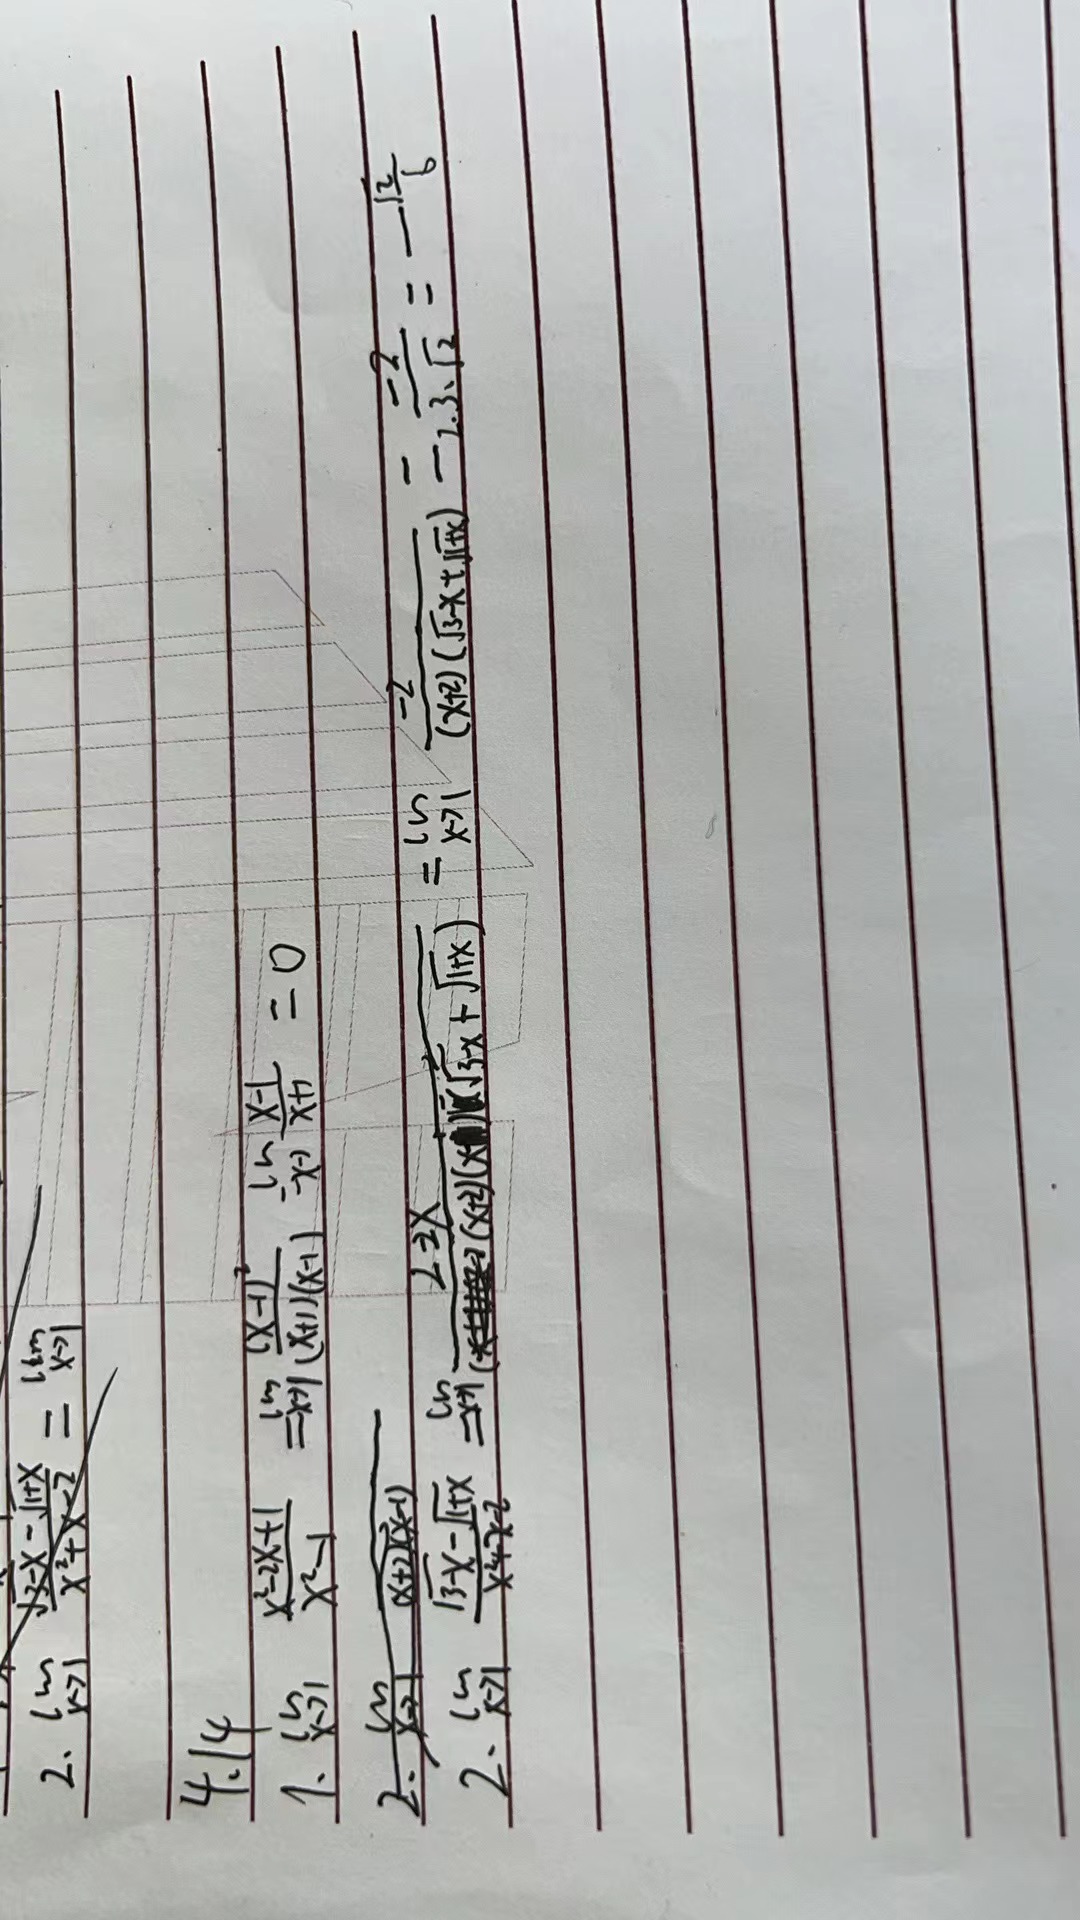 2. lim x→1 (√3-x - √1+x)/(x²+x-2) = lim x→1
4.14
1. lim x→1 (x²-2x+1)/(x²-1) = lim x→1 (x-1)²/((x+1)(x-1)) = lim x→1 (x-1)/(x+1) = 0
2. lim x→1 (x+2)(x-1)
2. lim x→1 (√3-x - √1+x)/(x²+x-2) = lim x→1 (2-2x)/((x+2)(x-1)(√3-x + √1+x)) = lim x→1 -2/((x+2)(√3-x + √1+x)) = -2/(2·3·√2) = -√2/6